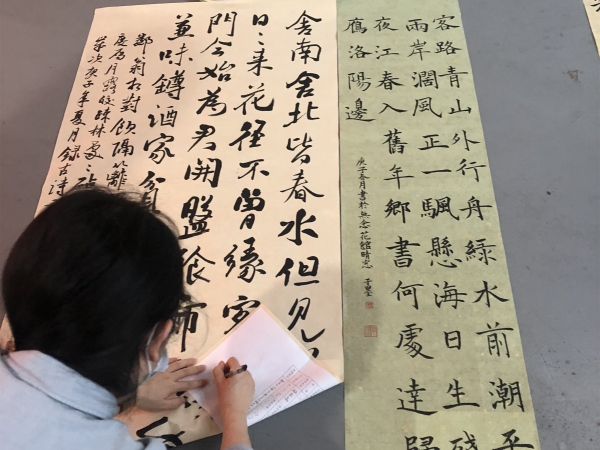 客路青山外行舟綠水前潮平
兩岸濶風正一颿懸海日生殘
夜江春入舊年鄉書何處達歸
鴈洛陽邊
庚子冬月書於無念花館晴窓
舍南舍北皆春水但見
日〻来花徑不曾緣客
門今始為君開盤飧市
兼味鐏酒家貧
鄰翁相對飲隔籬
次庚子年夏月録古詩